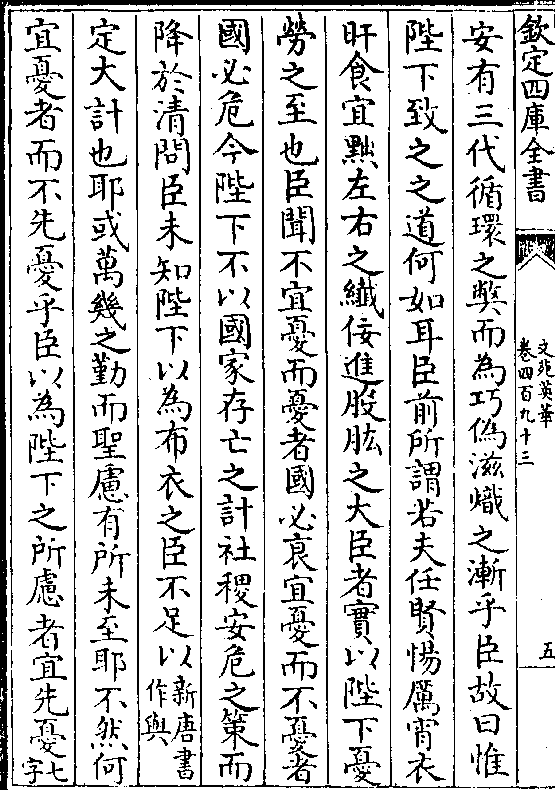 欽定四庫全書
文苑英華
卷四百九十三
五
安有三代循環之獘而為巧偽滋熾之漸乎臣故曰惟
陛下致之之道何如耳臣前所謂若夫任賢惕厲宵衣
旰食宜黜左右之纎佞進股肱之大臣者實以陛下憂
勞之至也臣聞不宜憂而憂者國必衰宜憂而不憂者
國必危今陛下不以國家存亡之計社稷安危之策而
降於清問臣未知陛下以為布衣之臣不足以新唐書作與
定大計也耶或萬幾之勤而聖慮有所未至耶不然何
宜憂者而不先憂乎臣以為陛下之所慮者宜先憂七字